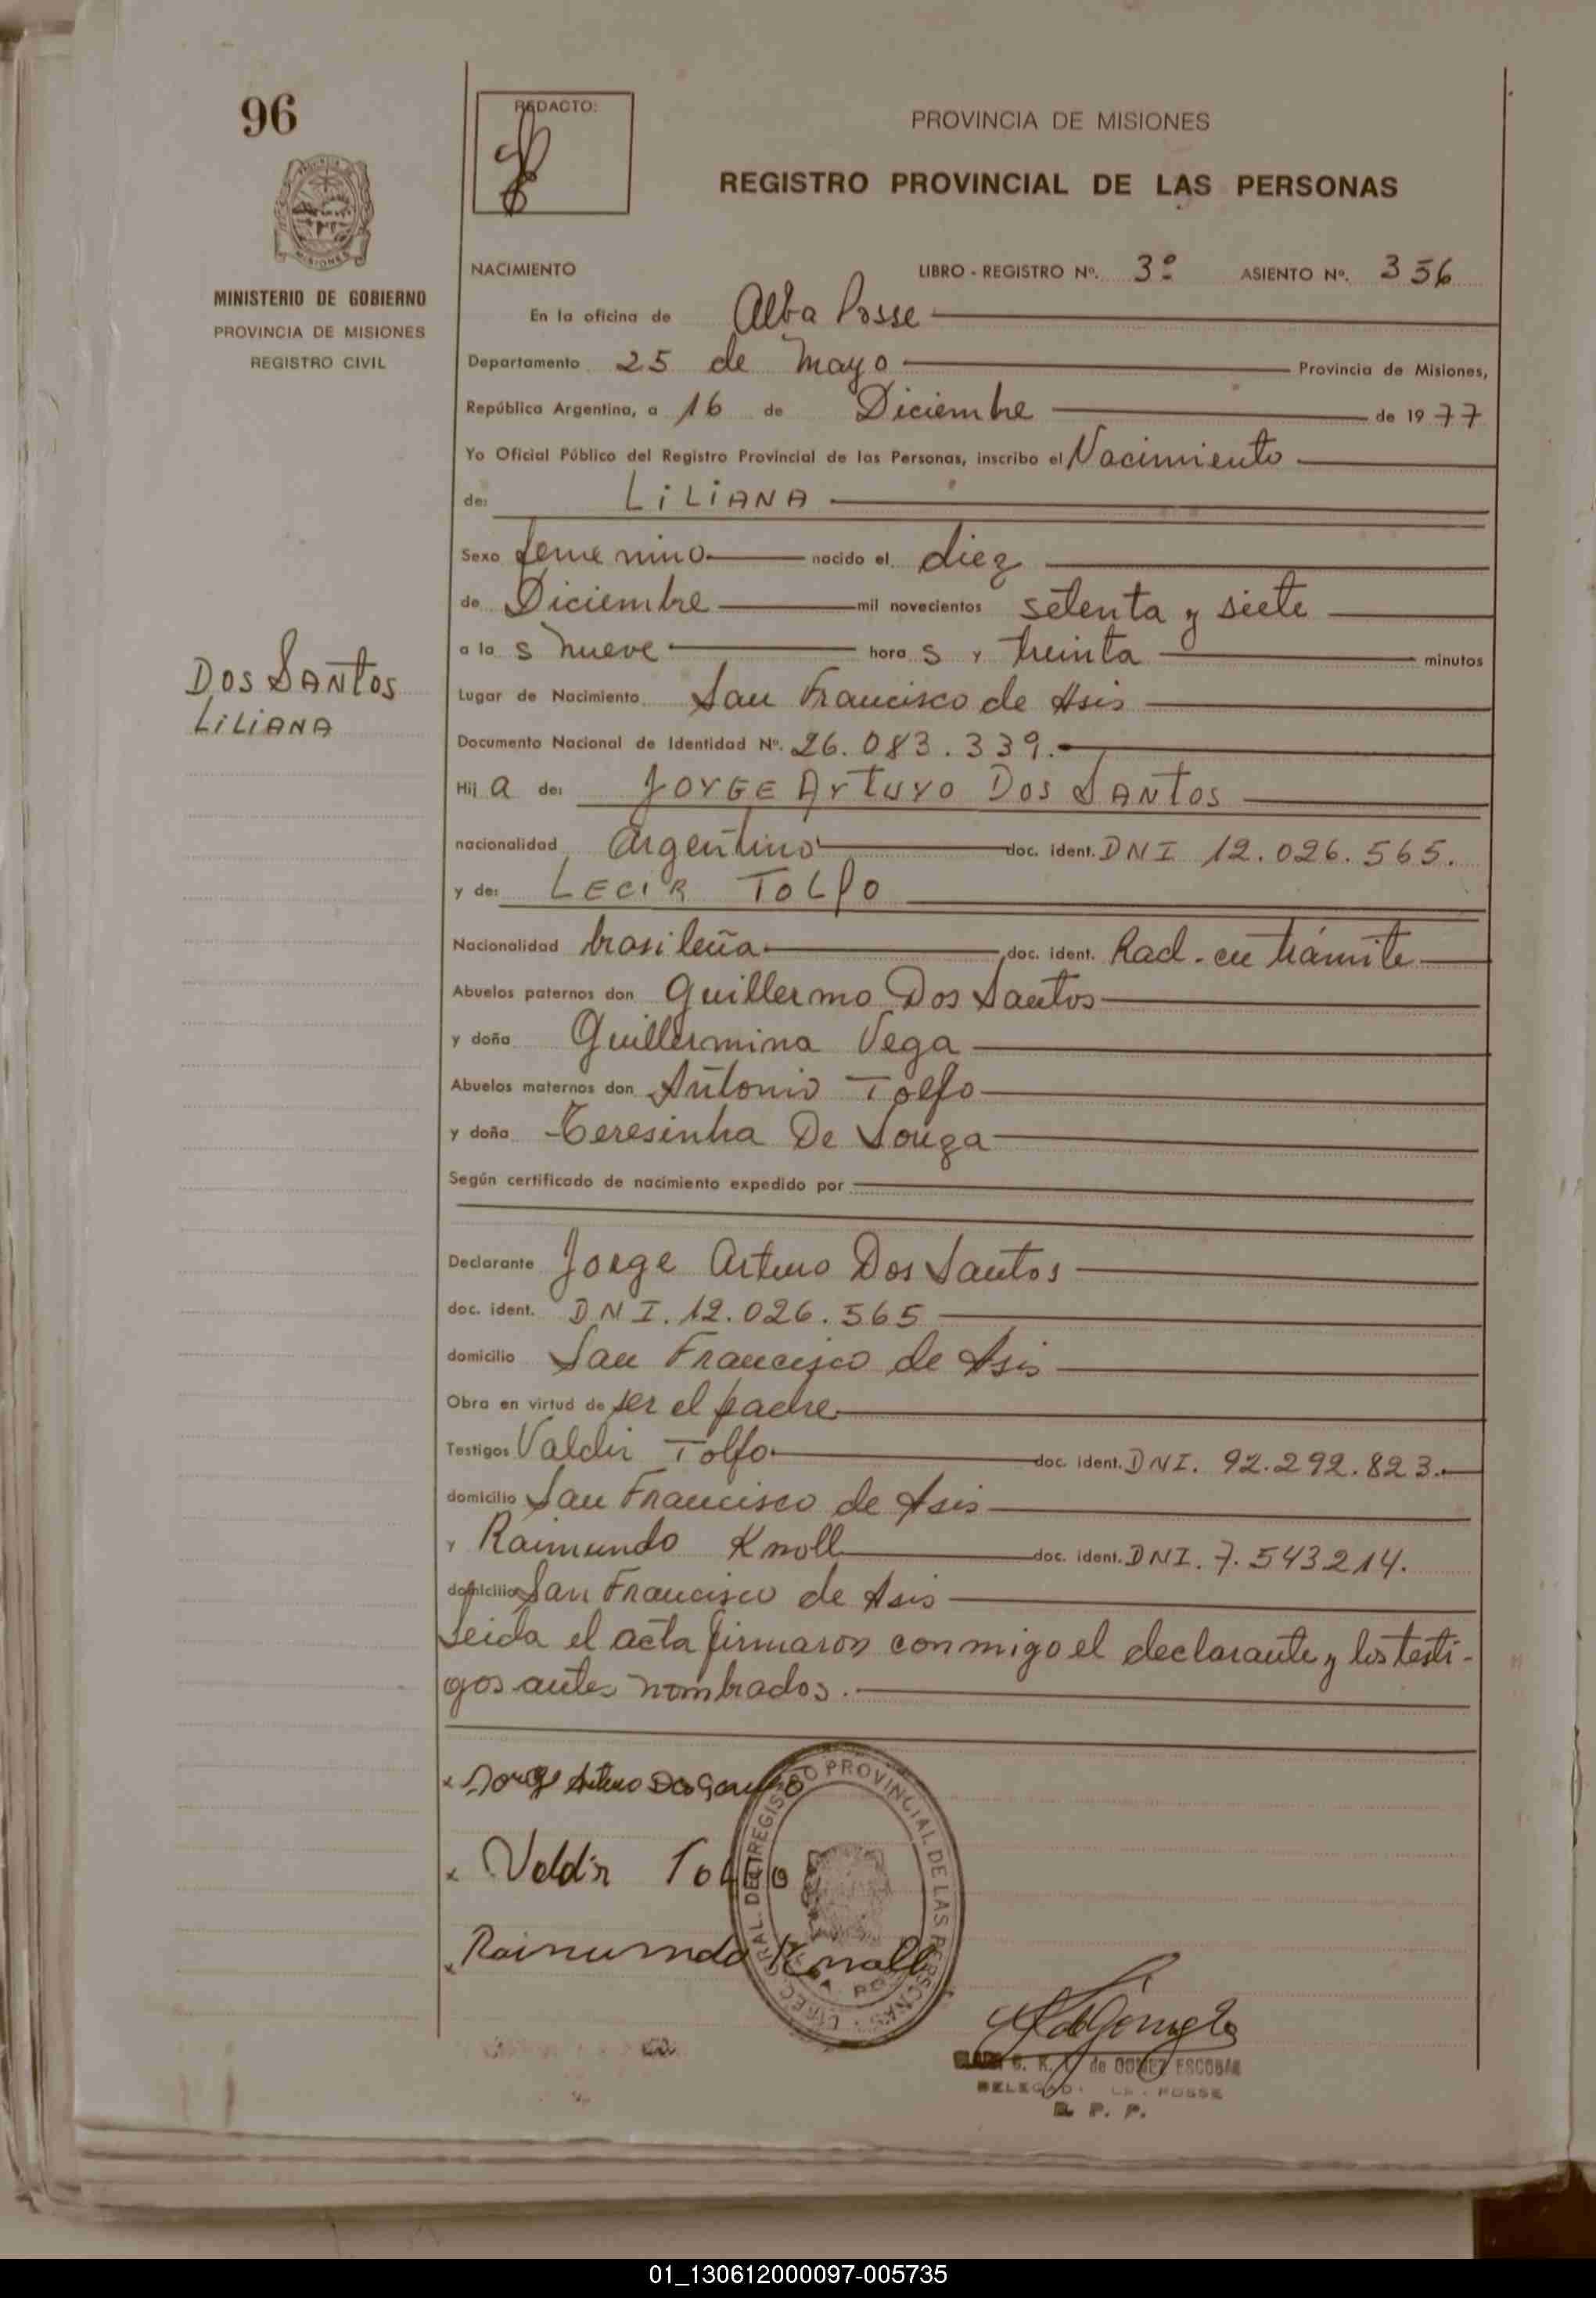 96
REDACTO:
PROVINCIA DE MISIONES
REGISTRO PROVINCIAL DE LAS PERSONAS
MISIONES
MINISTERIO DE GOBIERNO
PROVINCIA DE MISIONES
REGISTRO CIVIL
NACIMIENTO LIBRO - REGISTRO Nº. 3º ASIENTO Nº. 356
En la oficina de Alba Posse
Departamento 25 de Mayo Provincia de Misiones,
República Argentina, a 16 de Diciembre de 1977
Yo Oficial Público del Registro Provincial de las Personas, inscribo el Nacimiento
de: LiLiANA
Sexo femenino nacido el diez
de Diciembre mil novecientos setenta y siete
a las nueve horas y treinta minutos
DOS SANTOS
LiLiANA
Lugar de Nacimiento San Francisco de Asis
Documento Nacional de Identidad Nº. 26.083.339.
Hija de: JORGE ARTURO DOS SANTOS
nacionalidad Argentino doc. ident. DNI 12.026.565.
y de: LECIR TOLfO
Nacionalidad brasileña doc. ident. Rad. en trámite
Abuelos paternos don Guillermo Dos Santos
y doña Guillermina Vega
Abuelos maternos don Antonio Tolfo
y doña Teresinha De Souza
Según certificado de nacimiento expedido por
Declarante Jorge Arturo Dos Santos
doc. ident. DNI. 12.026.565
domicilio San Francisco de Asis
Obra en virtud de ser el padre
Testigos Valdir Tolfo doc. ident. DNI. 92.292.823.
domicilio San Francisco de Asis
y Raimundo Knoll doc. ident. DNI. 7.543214.
domicilio San Francisco de Asis
Leida el acta firmaron conmigo el declarante y los testi-
gos antes nombrados.
x Jorge Arturo Dos Santos
x Valdir Tolfo
x Raimundo Knoll
REGISTRO PROVINCIAL DE LAS PERSONAS
de GOMEZ ESCOBAR
POSSE
R. P. P.
01_130612000097-005735